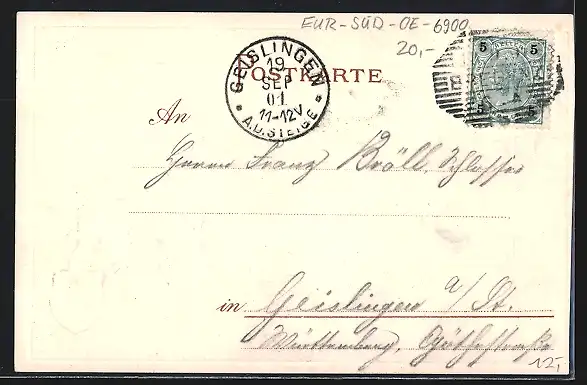 EUR-SÜD-OE-6900
20,-
5 5
5 5
GEISLINGEN
19
SEP
01
11-12V
A.D. STEIGE
POSTKARTE
An
Herrn Franz Bröll, Schlosser
in Geislingen a/St.
Württemberg,
12,-